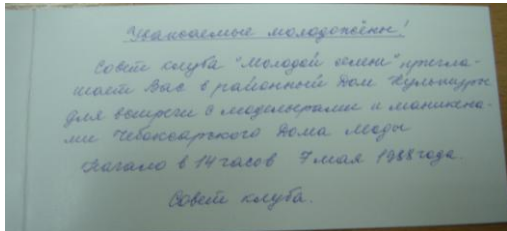 Уважаемые молодожёны!
Совет клуба "Молодой семьи" пригла-
шает Вас в районный Дом Культуры
для встречи с модельерами и манекена-
ми Чебоксарского Дома Моды
Начало в 14 часов 7 мая 1988 года.
Совет клуба.